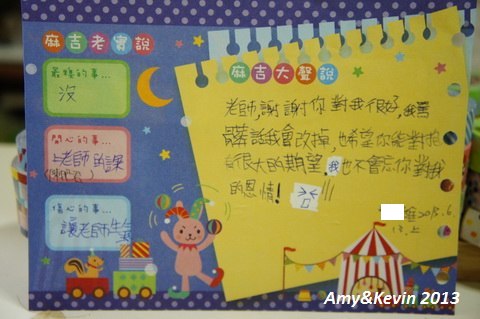 麻吉老實說
沒
開心的事...
上老師的課
傷心的事...
讓老師生氣
麻吉大聲說
老師,謝謝你對我很好,我罵
髒話我會改掉,也希望你能對抱
有很大的期望,我也不會忘你對我
的恩情!
2013.6.
Amy&Kevin 2013